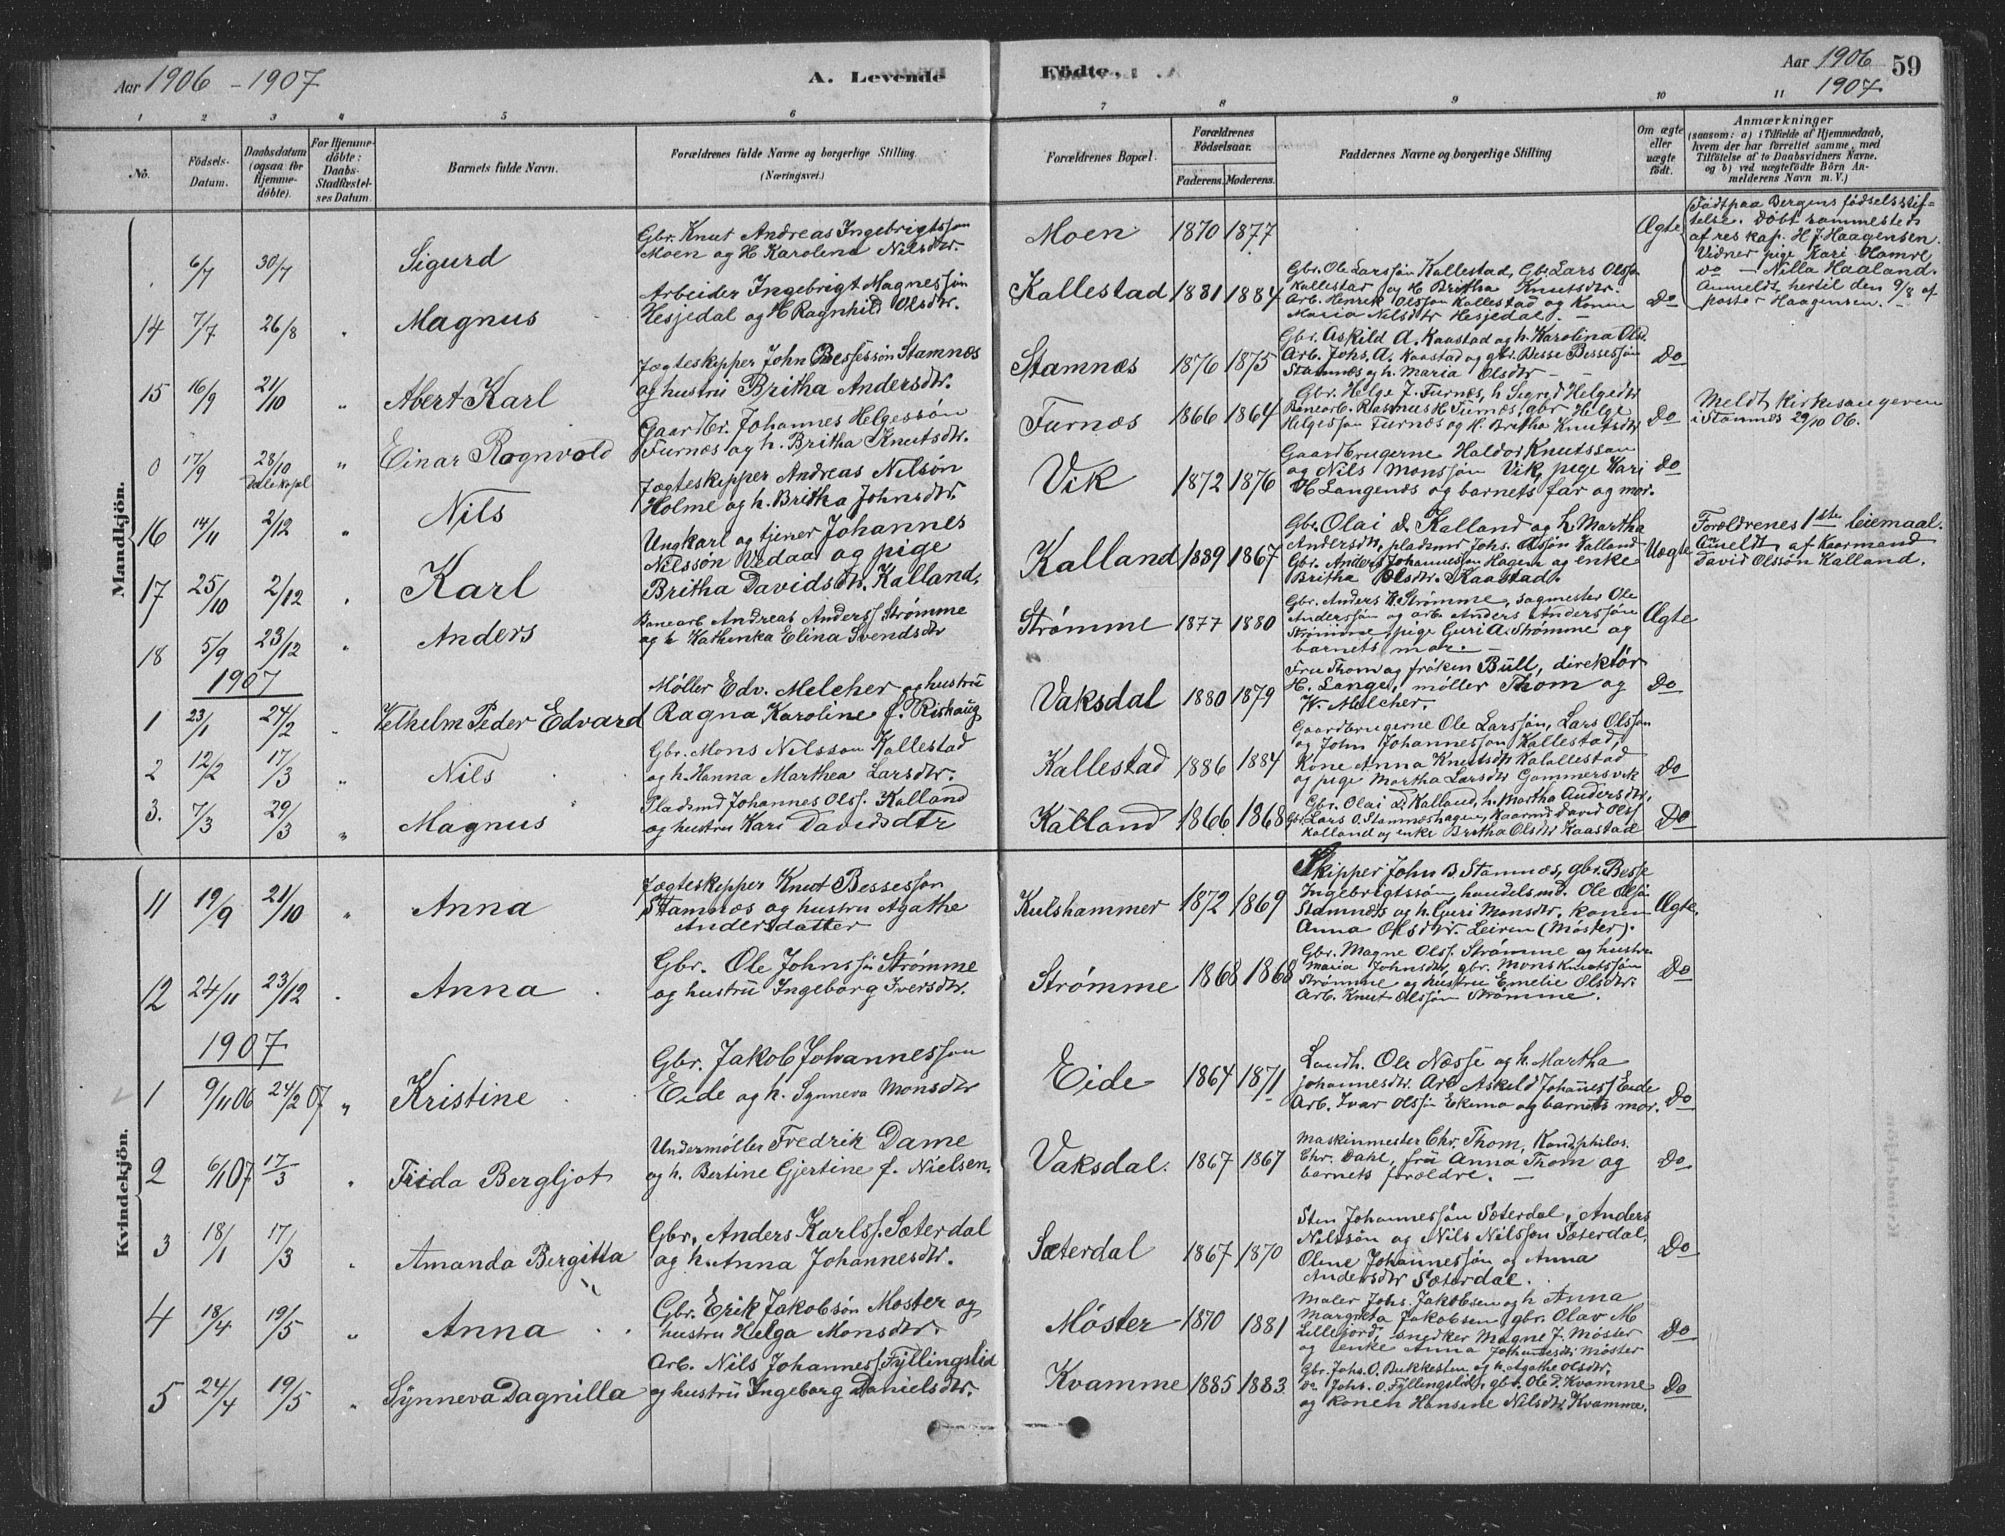 Aar 1906 - 1907
A. Levende Födte.
Aar 1906 1907
59
1 2 3 4 5 6 7 8 9 10 11
No.
Födsels-Datum.
Daabsdatum (ogsaa for Hjemmedöbte).
For Hjemmedöbte: Daabs-Stadfæstelses Datum.
Barnets fulde Navn.
Forældrenes fulde Navne og borgerlige Stilling (Næringsvei.)
Forældrenes Bopæl.
Forældrenes Födselsaar.
Faderens. Moderens.
Faddernes Navne og borgerlige Stilling
Om ægte eller uægte födt.
Anmærkninger
(saasom: a) i Tilfælde af Hjemmedaab, hvem der har forrettet samme, med Tilföielse af to Daabsvidners Navne, og b) ved uægtefödte Börn Anmelderens Navn m. V.)
Mandkjön.
6/7 30/7 Sigurd
Gbr. Knut Andreas Ingebrigtsson
Moen og H Karolina Nilsdtr.
Moen 1870 1877 Ægte
Född paa Bergens fødselsstif-
telse. Døbt sammesteds
af res kap. H J. Haagensen.
Vidner pige Kari Hamre
do — Nilla Haaland.
Anmeldt hertil den 9/8 af
pastor Haagensen.
14 7/7 26/8 " Magnus
Arbeider Ingebrigt Magnessøn
Hesjedal og H Ragnhild Olsdtr.
Kallestad 1881 1884
Gbr. Ole Larssøn Kallestad, Gb. Lars Olss
Kallestad og H Britha Knutsdtr.
Arb. Henrik Olsson Kallestad og Konen
Maria Nilsdtr Hesjedal. —
Do
15 16/9 21/10 " Abert Karl
Jægteskipper John Bessessøn Stamnes
og hustru Britha Andersdtr.
Stamnæs 1876 1875
Gbr. Askild A. Kaastad og h. Karolina Olsd.
Arb. Johs. A. Kaastad og gbr. Besse Bessesøn
Stamnæs og h. Maria Olsdtr — -
Do
0 17/9 28/10 Dalekapel " Einar Rognvold
Gaardbr. Johannes Helgessøn
Furnæs og h. Britha Knutsdtr.
Furnæs 1866 1864
Gbr. Helge J. Furnæs, h Sigrid Helgedtr
Banearb. Rasmus H Furnæs, gbr Helge
Helgessøn Furnæs og H. Britha Knutsdtr
Do
Meldt kirkesangeren
i Stamnes 29/10 06.
16 14/11 2/12 " Nils
Jægteskipper Andreas Nilsøn
Holme og h. Britha Johnsdtr.
Vik 1872 1876
Gaardbrugerne Haldor Knutsson
og Nils Monssøn Vik, pige Kari
H Langenes og barnets far og mor.
Do
17 25/10 2/12 Karl
Ungkarl og tjener Johannes
Nilssøn Vedaa og pige
Britha Davidsdtr. Kalland.
Kalland 1889 1867
Gbr. Olai D. Kalland og h. Martha
Andersdtr, pladsmd Johs. Olssøn Kalland
Gbr. Anders Johannessøn Hagen og enke
Britha Olsdtr. Kaastad.
Uægte
Forældrenes 1ste leiemaal.
Anmeldt af Kaarmand
David Olssøn Kalland.
18 5/9 23/12 " Anders
Banearb Andreas Anderss Strømme
og h Kathinka Elina Svendsdtr
Strømme 1877 1880
Gbr. Anders K. Strømme, sagmester Ole
Anderssøn og arb Anders Anderssøn
Strømme, pige Guri A. Strømme og
barnets mor. —
Ægte
1907
1 23/1 24/2 Vilhelm Peder Edvard
Møller Edv. Melcher og hustru
Ragna Karoline f. Riskaug
Vaksdal 1880 1879
Fru Thom og frøken Büll, direktør
H. Lange, møller Thom og
W. Melcher.
Do
2 12/2 17/3 " Nils
Gbr. Mons Nilsson Kallestad
og h. Hanna Marthea Larsdtr.
Kallestad 1886 1884
Gaardbrugerne Ole Larssøn, Lars Olsson
og John Johannesson Kallestad,
Kone Anna Knutsdtr Kalallestad
og pige Martha Larsdtr Gammersvik
Do
3. 7/3 29/3 " Magnus
Pladsmd Johannes Olss. Kalland
og hustru Kari Davidsdtr
Kalland 1866 1868
Gbr. Olai D. Kalland, h. Martha Andersdtr,
Gbr. Lars O. Stamneshagen, Kaarmd David Olss
Kalland og enke Britha Olsdtr Kaastad
Do
Kvindekjön.
11 19/9 21/10 " Anna
Jægteskipper Knut Bessesson
Stamnæs og hustru Agathe
Andersdatter
Kulshammer 1872 1869
Skipper John B Stamnæs, gbr. Besse
Ingebrigtssøn, handelsmd. Ole Olsøn
Stamnæs og h. Guri Monsdtr. konen
Anna Olsdtr. Leiren (Møster).
Ægte.
12 24/11 23/12 Anna
Gbr. Ole Johnssøn Strømme
og hustru Ingeborg Iversdtr.
Strømme 1868 1868
Gbr. Magne Olss. Strømme og hustru
Maria Johnsdtr, gbr. Mons Knutssøn
Strømme og hustru Emelie Olsdtr.
Arb. Knut Olssøn Strømme.
Do
1907
1 9/11 06 24/2 07 " Kristine
Gbr. Jakob Johannesson
Eide og h. Synneva Monsdtr
Eide 1864 1871
Lendh. Ole Næsse og h. Martha
Johannesdtr. Arb Askild Johaness Eide
Arb. Ivar Olssøn Ekema og barnets mor.
Do
2 6/1 07 17/3 " Frida Bergljot
Undermøller Fredrik Dame
og h. Bertine Gjertine f. Nielsen.
Vaksdal. 1867 1867
Maskinmester Chr. Thom, Kand. philos.
Chr. Dahl, frü Anna Thom og
barnets forældre. —
Do
3 18/1 17/3 Amanda Bergitta
Gbr. Anders Karlss. Sæterdal
og h. Anna Johannesdtr.
Sæterdal 1867 1870
Sten Johannessøn Sæterdal, Anders
Nilssøn og Nils Nilssøn Sæterdal,
Oline Johannessøn og Anna
Andersdtr Sæterdal.
Do
4 18/4 19/5 " Anna
Gbr. Erik Jakobsøn Moster og
hustru Helga Monsdtr.
Møster 1870 1881
Maler Johs. Jakobsen og h Anna
Margreta Jakobsen, gbr. Olav M
Lillefjord, snedker Magne J. Møster
og enke Anna Johannesdtr Møster
Do
5 24/4 19/5 " Synneva Dagnilla
Arb. Nils Johanness Fyllingslid
og hustru Ingeborg Danielsdtr.
Kvamme 1885 1883
Gbr. Johs. O. Bukkesten og h. Agathe Olsdtr.
do Johs. O. Fyllingslid, gbr. Ole D. Kvamme
og konen Hansine Nilsdtr. Kvamme.
Do